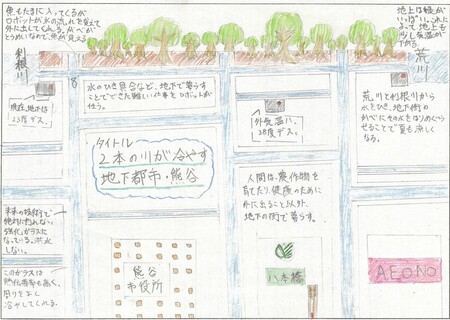 魚もたまに入ってくるが
ロボットが水の流れを変えて
外に出してくれる。かべが
とうめいなので、魚が見える
利根川
地上は緑が
いっぱい。これに
よって、地上も
少し気温が
下がる。
荒川
現在、地下は
23度デス。
水のひき具合など、地下で暮らす
ことでできた難しい仕事をロボットが
行う。
外気温は、
38度デス。
荒川と利根川から
水をひき、地下街の
かべにその水をはりめぐら
せることで夏も涼しく
なる。
タイトル
2本の川が冷やす
地下都市・熊谷
人間は、農作物を
育てたり、健康のために
外に出ること以外、
地下の街で暮らす。
未来の技術で
絶対に割れない
強化ガラスに
なっている。浸水
しない。
このガラスは
熱伝導率も高く、
周りをよく
冷やしてくれる。
熊谷
市役所
八木橋
AEONO